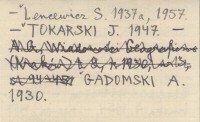 -"Lencewicz S. 1937a, 1957.
-"TOKARSKI J. 1947. -
Wiadomości Geograficzne
(Kraków)
GADOMSKI A.
1930.